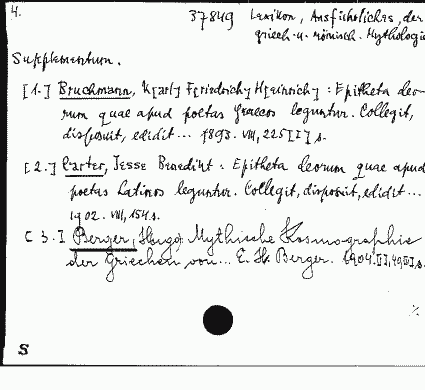 4.
37849 Lexikon, Ausführliches, der
griech. u. römisch. Mythologie
Supplementum.
[1.] Bruchmann, K[arl] F[riedrich] H[einrich] : Epitheta deo-
rum quae apud poetas Graecos leguntur. Collegit,
disposuit, edidit... 1893. VIII, 225 [I] s.
[2.] Carter, Jesse Benedikt : Epitheta deorum quae apud
poetas Latinos leguntur. Collegit, disposuit, edidit...
1902. VIII, 154 s.
[3.] Berger, Hugo, Mythische Kosmographie
der Griechen von... E. H. Berger. 1904.
S